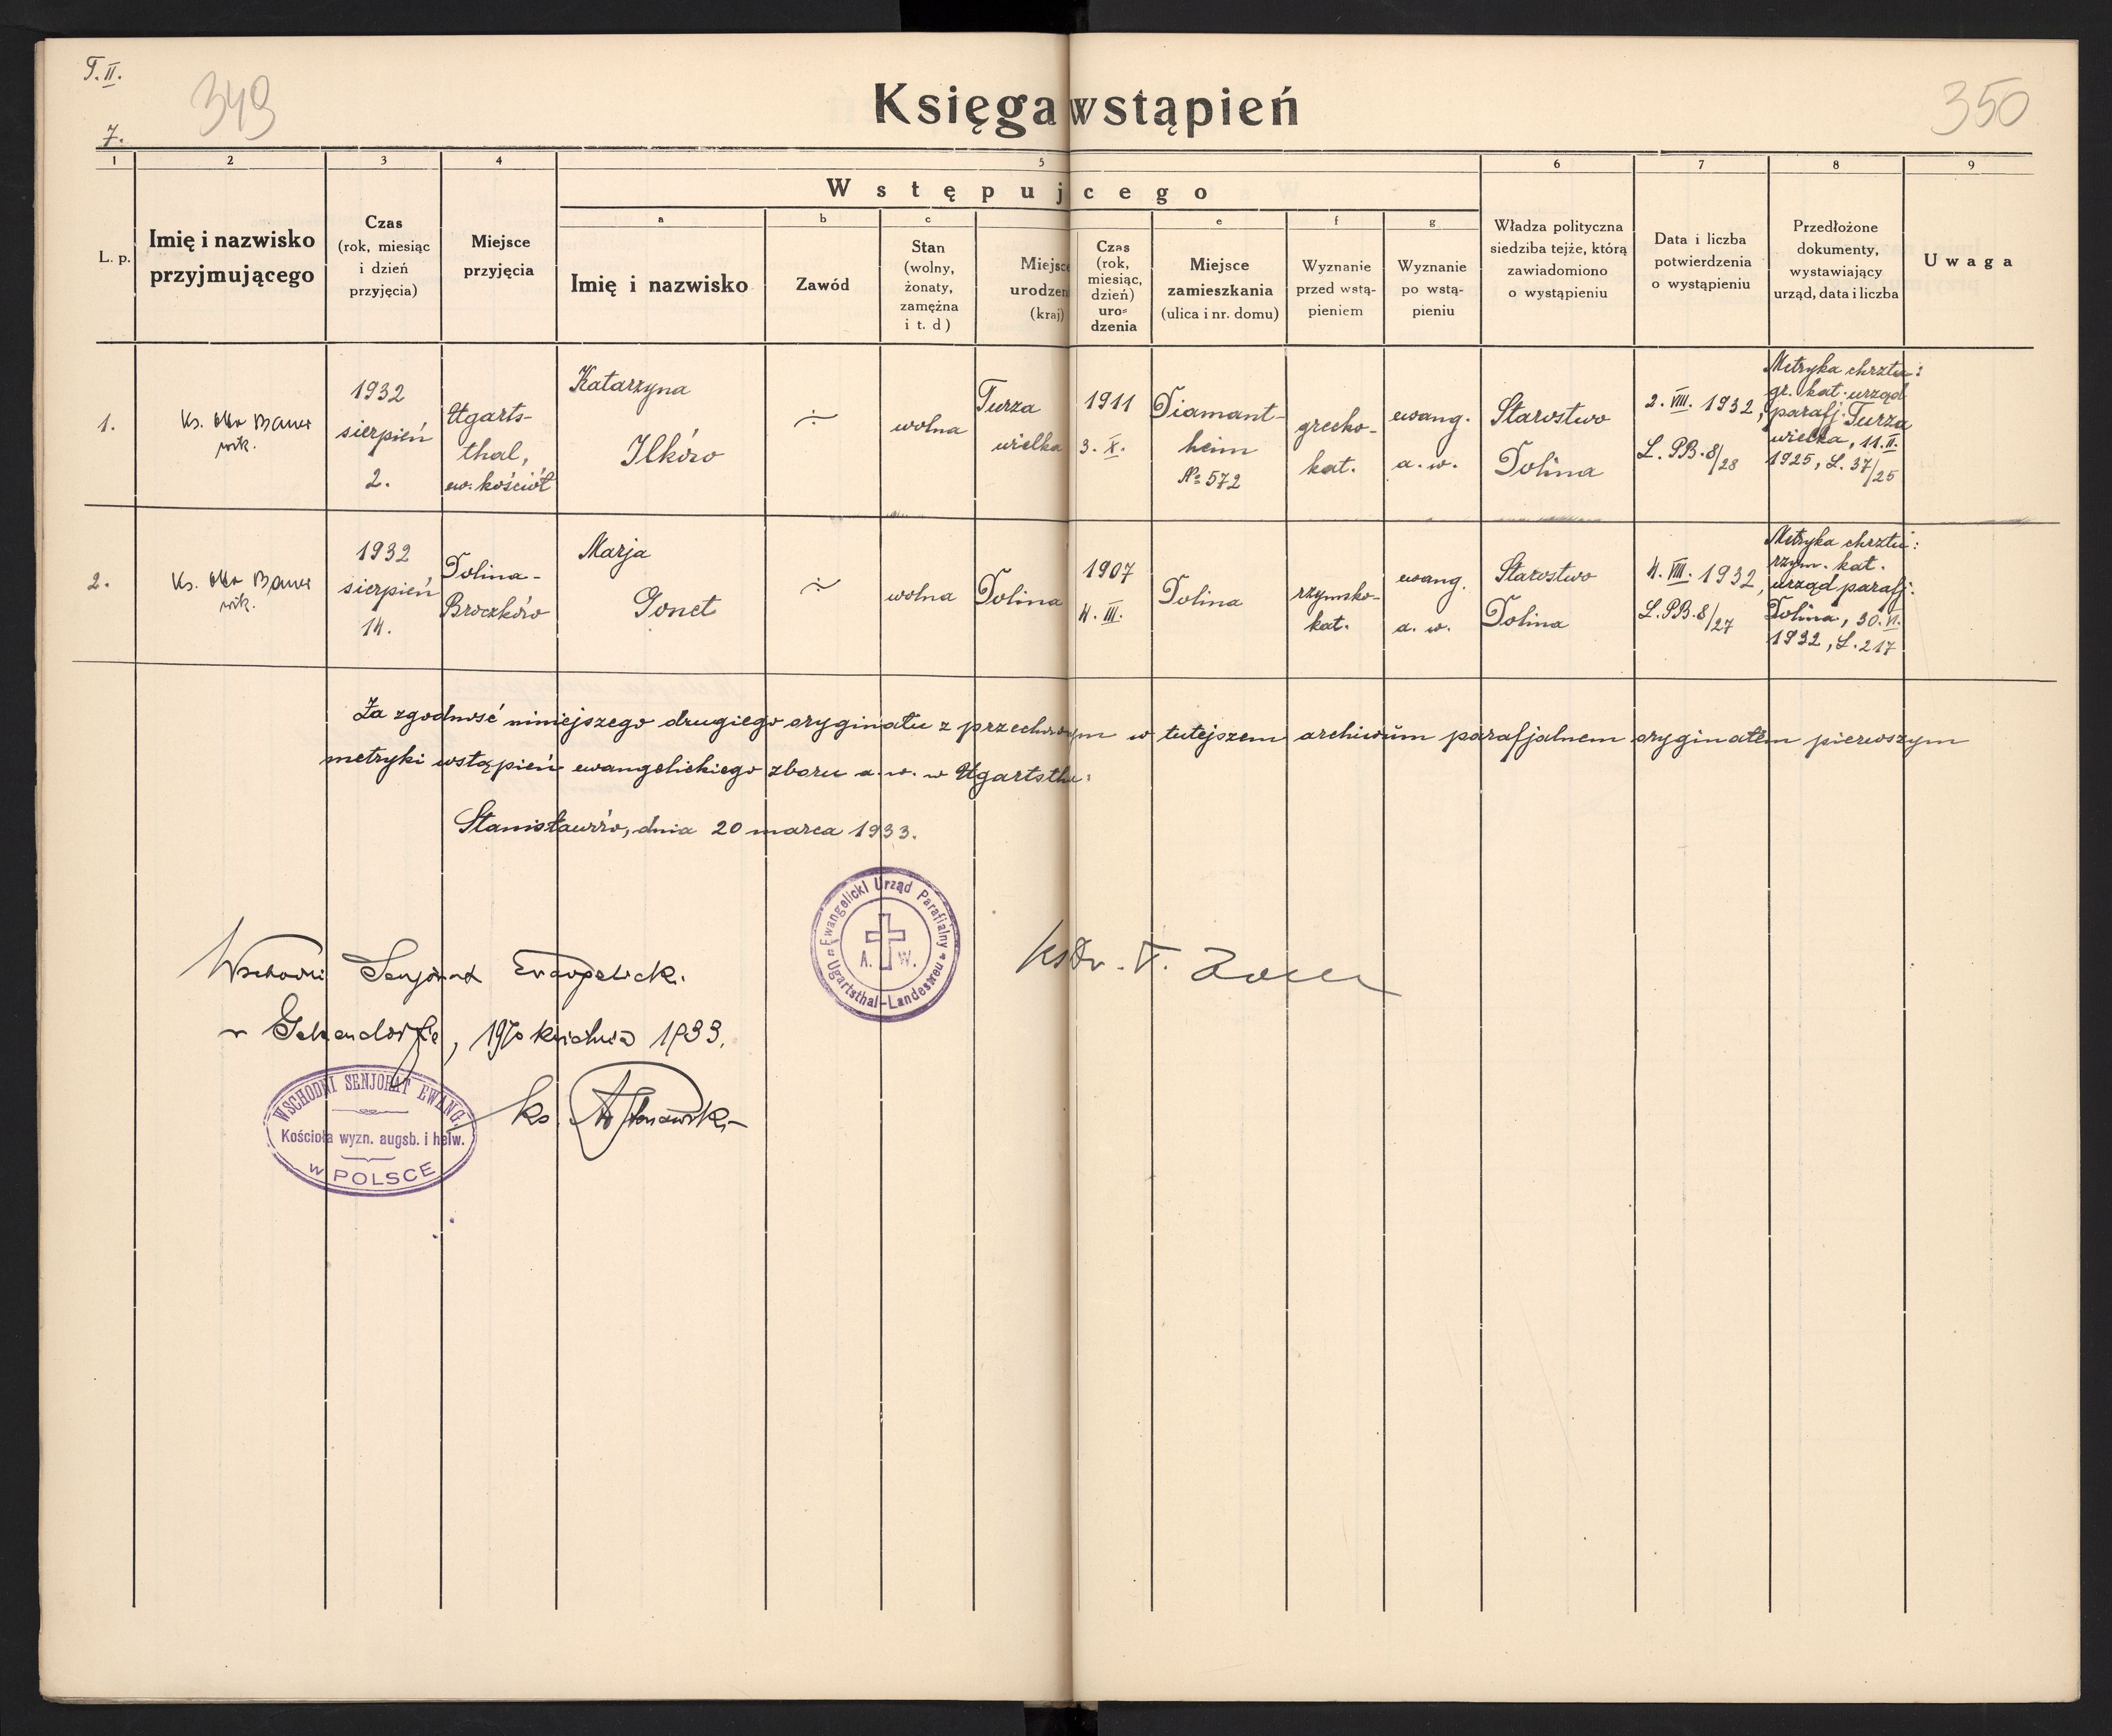 T. II.
7.
349
350
Księga wstąpień
1
2
3
4
5
6
7
8
9
Wstępującego
L. p.
Imię i nazwisko
przyjmującego
Czas
(rok, miesiąc
i dzień
przyjęcia)
Miejsce
przyjęcia
a
Imię i nazwisko
b
Zawód
c
Stan
(wolny,
żonaty,
zamężna
i t. d )
Miejsce
urodzen
(kraj)
Czas
(rok,
miesiąc,
dzień)
uro-
dzenia
e
Miejsce
zamieszkania
(ulica i nr. domu)
f
Wyznanie
przed wstą-
pieniem
g
Wyznanie
po wstą-
pieniu
Władza polityczna
siedziba tejże, którą
zawiadomiono
o wystąpieniu
Data i liczba
potwierdzenia
o wystąpieniu
Przedłożone
dokumenty,
wystawiający
urząd, data i liczba
Uwaga
1.
Ks. Otto Bauer
wik.
1932
sierpień
2.
Ugarts-
thal,
ew. kościół
Katarzyna
Ilków
÷
wolna
Turza
wielka
1911
3. X.
Diamant-
heim
№ 572
grecko-
kat.
ewang.
a. w.
Starostwo
Dolina
2. VIII. 1932,
L. PB. 8/28
Metryka chrztu:
gr. kat. urząd
parafj. Turza
wielka, 11. II.
1925, L. 37/25
2.
Ks. Otto Bauer
wik.
1932
sierpień
14.
Dolina-
Broczków
Marja
Gonet
÷
wolna
Dolina
1907
4. III.
Dolina
rzymsko-
kat.
ewang.
a. w.
Starostwo
Dolina
4. VIII. 1932,
L. PB. 8/27
Metryka chrztu:
rzym. kat.
urząd parafj.
Dolina, 30. VI.
1932, L. 217
Za zgodność niniejszego drugiego oryginału z przechowanym w tutejszem archiwum parafjalnem oryginałem pierwszym
metryki wstąpień ewangelickiego zboru a. w. w Ugartsthalu:
Stanisławów, dnia 20 marca 1933.
Ewangelicki Urząd Parafialny
A. W.
Ugartsthal-Landestreu
Ks Dr. F. Zöckler
Wschodni Senjorat Ewangelick.
w Gelsendorfie, 19go kwietnia 1933.
WSCHODNI SENJORAT EWANG.
Kościoła wyzn. augsb. i helw.
w POLSCE
ks.